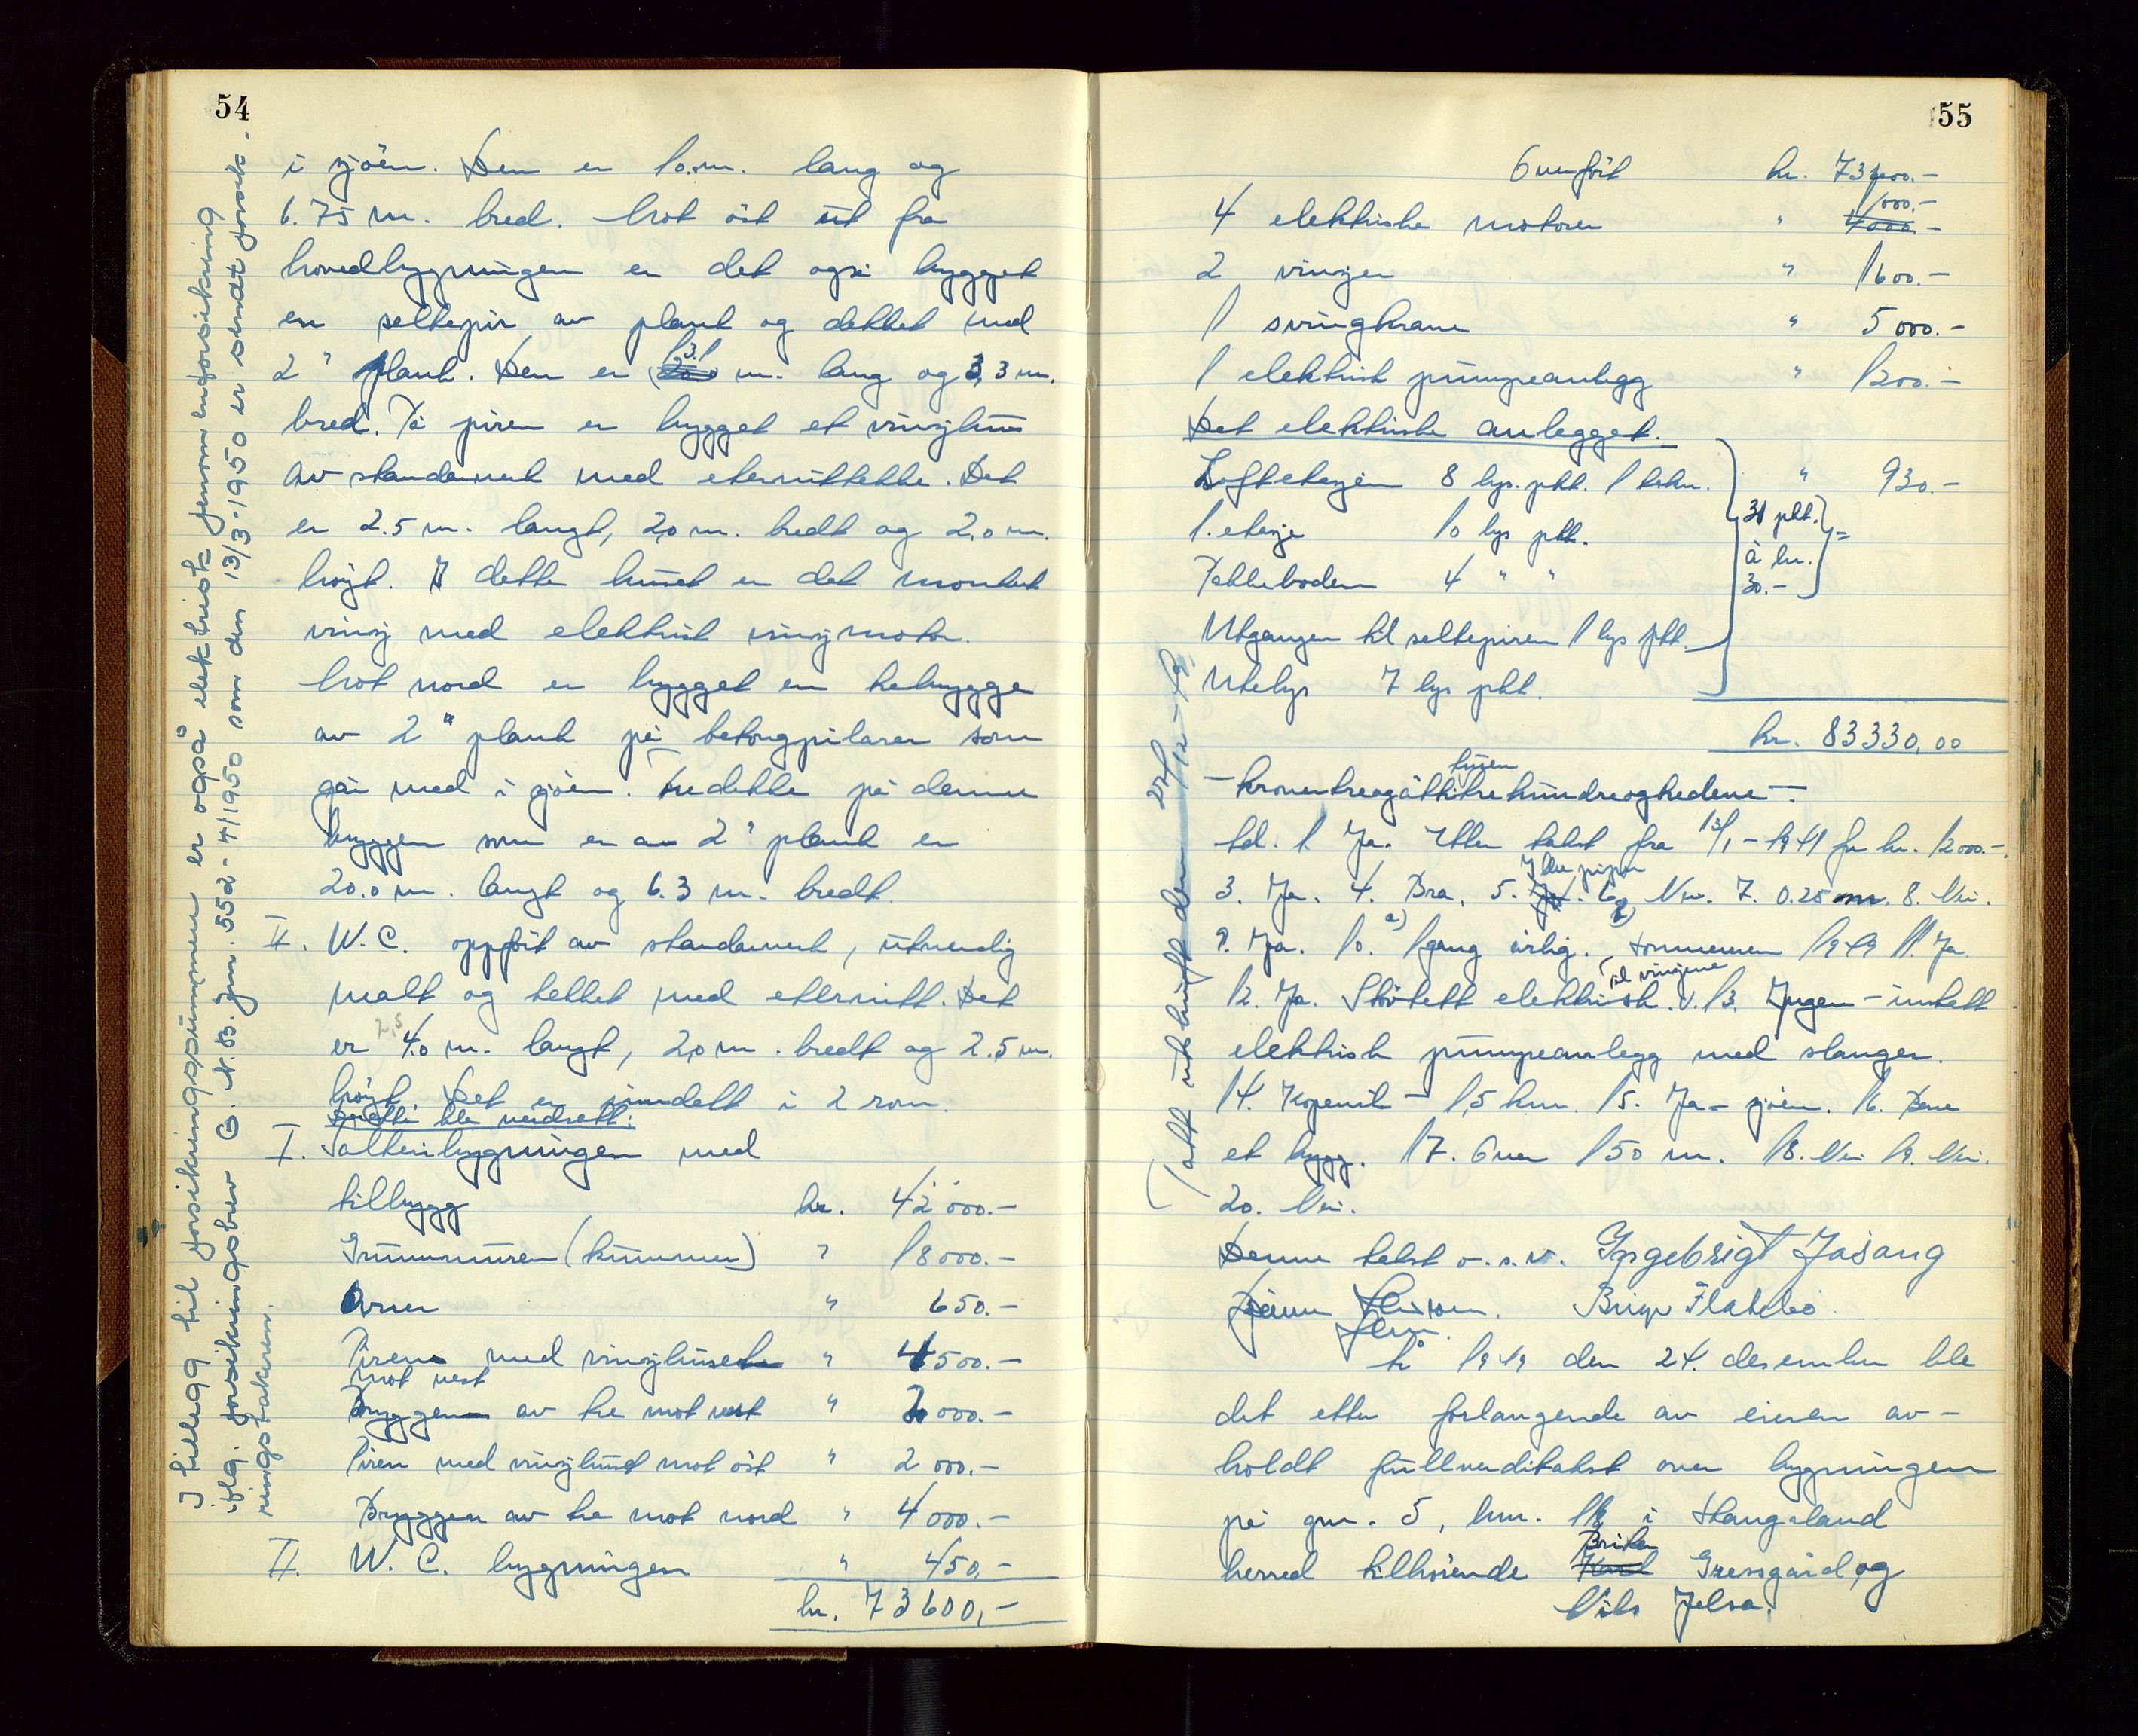 54
i sjöen. Den er 10.m. lang og
6.75 m. bred. Mot öst ut fra
hovedbygningen er det også bygget
en saltepir av plank og dekket med
2" plank. Den er 13.1 m. lang og 3,3 m.
bred. På piren er bygget et vinsjhus
av standerverk med eternittekke. Det
er 2.5 m. langt, 2,0 m. bredt og 2,0 m.
høyt. I dette huset er det montert
vinsj med elektrisk vinsjmotor.
Mot nord er bygget en trebrygge
av 2" plank på betongpilarer som
går ned i sjöen. Tredekke på denne
bryggen som er av 2" plank er
20.0 m. langt og 6.3 m. bredt.
II. W.C. oppfört av standerverk, utvendig
malt og tekket med eternitt. Det
er 4.0 m. langt, 2,0 m. bredt og 2.5 m.
2,5
höyt. Det er inndelt i 2 rom.
I. Salteribygningen med
tilbygg kr. 42 000.-
Grunnmuren (kummer) " 18 000.-
Ovner " 650.-
Piren med vinsjhuset " 4 500.-
mot vest
Bryggen av tre mot vest " 2 000.-
Piren med vinsjhuset mot öst " 2 000.-
Bryggen av tre mot nord " 4 000.-
II. W.C. bygningen " 450,-
kr. 73 600,-
I tillegg til forsikringssummen er også elektrisk fenomenforsikring
iflg. forsikringsbrev G. N.B. Jnr. 552 - 4/1950 som den 13/3-1950 er sendt forsik-
ringstakeren.
55
Overfört kr. 73600.-
1000.-
4 elektriske motorer " 4000.-
2 vinsjer " 1600.-
1 svingkrane " 5 000.-
1 elektrisk pumpeanlegg " 1200.-
Det elektriske anlegget.
Loftetasjen 8 lys. pkt. 1 stikk. " 930.-
1. etasje 10 lys pkt.
31 pkt.
à kr.
30.- =
Pakkboden 4 " "
Utgangen til saltepiren 1 lys pkt.
Utelys 7 lys pkt.
kr. 83330,00
- kronertreogåttitusentrehundreogtredve -
td. 1. Ja. Etter takst fra 13/1 - 1941 for kr. 12000.-
3. Ja. 4. Bra. 5. Ja. 6. Nei. 7. 0.25 m. 8. Nei.
9. Ja. 10. a) 1 gang årlig. b) Sommeren 1949 11. Ja.
12. Ja. Stötett elektrisk. til vinsjene 13. Ingen - untatt
elektrisk pumpeanlegg med slanger.
14. Kopervik - 1,5 km. 15. Ja - sjöen. 16. Bare
et bygg. 17. Over 150 m. 18. Nei 19. Nei.
20. Nei.
Denne takst o.s.v. Ingebrigt Jasang
Birger Flatebö.
År 1949 den 24. desember ble
det etter forlangende av eieren av-
holdt fullverditakst over bygningen
på gnr. 5, bnr. 18 i Stangaland
herred tilhörende Knut Gressgård og
Nils Jelsa.
Tatt utskrift den